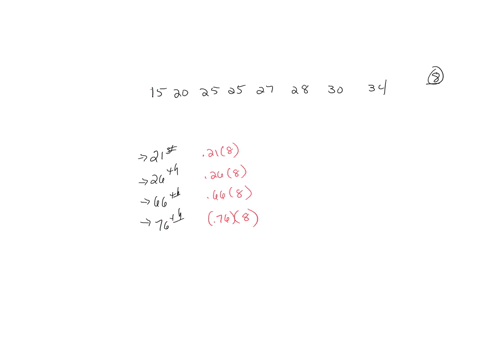 8
15 20 25 25 27 28 30 34
→ 21st .21(8)
→ 26th .26(8)
→ 66th .66(8)
→ 76th (.76)(8)